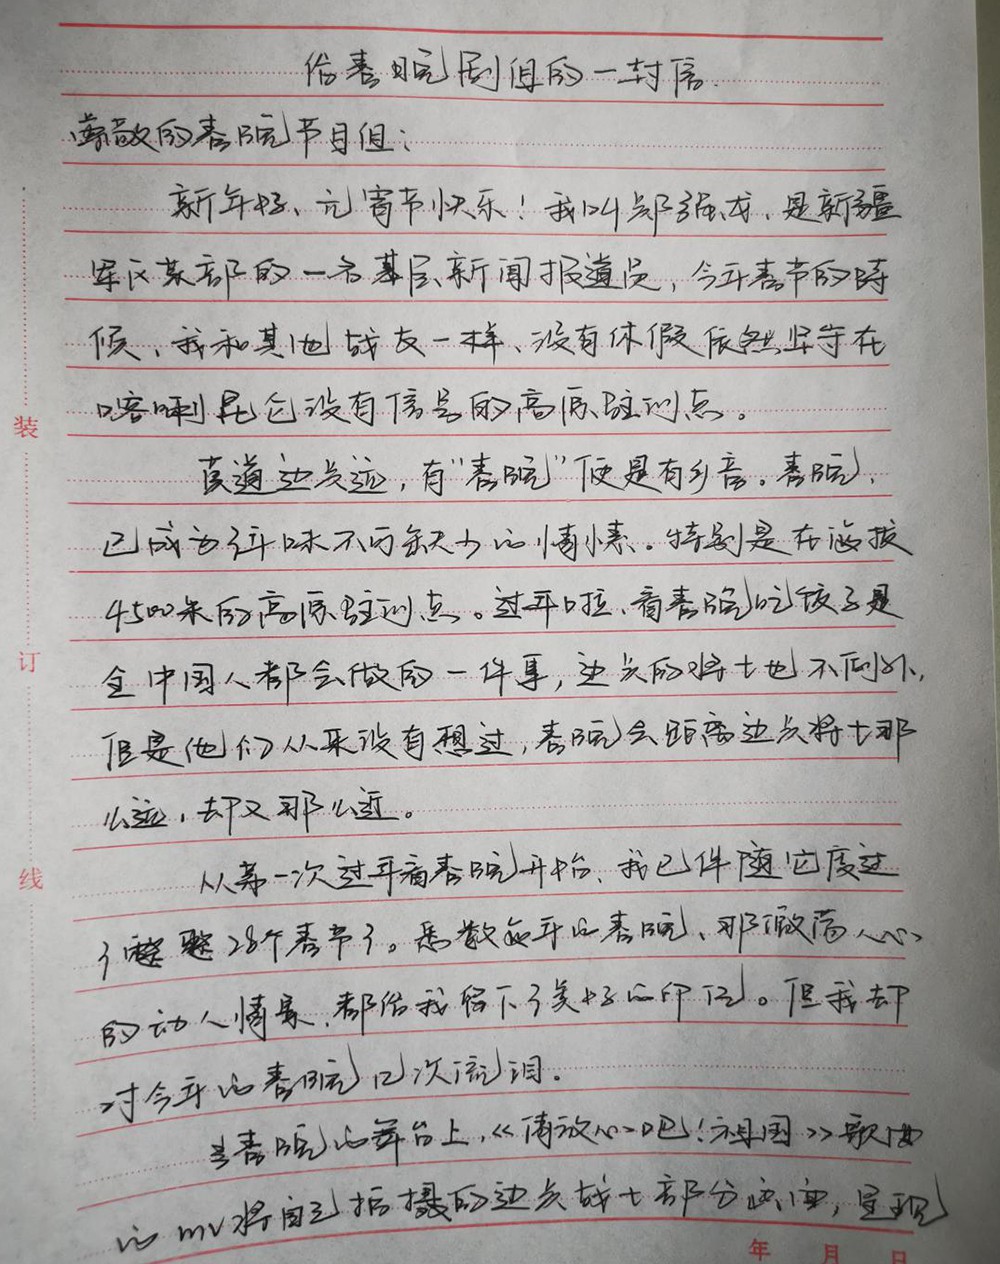 给春晚剧组的一封信
尊敬的春晚节目组:
新年好、元宵节快乐!我叫郭强龙、是新疆
军区某部的一名基层新闻报道员,今年春节的时
候、我和其他战友一样、没有休假依然坚守在
喀喇昆仑没有信号的高原驻训点。
莫道边关远,有“春晚”便是有乡音。春晚、
已成为年味不可缺少的情愫。特别是在海拔
4500米的高原驻训点。过年啦、看春晚吃饺子是
全中国人都会做的一件事,边关的将士也不例外、
但是他们从来没有想过,春晚会距离边关将士那
么远,却又那么近。
从第一次过年看春晚开始、我已伴随它度过
了整整28个春节了。悉数每年的春晚、那激荡人心
的动人情景、都给我留下了美好的印记。但我却
对今年的春晚几次流泪。
当春晚的舞台上,《请放心吧!祖国》歌曲
的mv将自己拍摄的边关战士部分画面,呈现
装
订
线
年 月 日